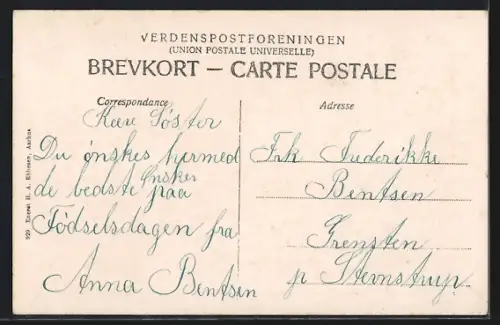 VERDENSPOSTFORENINGEN
(UNION POSTALE UNIVERSELLE)
BREVKORT — CARTE POSTALE
Correspondance
Kære Söster
Du önskes hermed
de bedste Ønsker paa
Födselsdagen fra
Anna Bentsen
Adresse
Frk Frederikke
Bentsen
Grensten
pr Stevnstrup.
929 Eneret H. A. Ebbesen, Aarhus